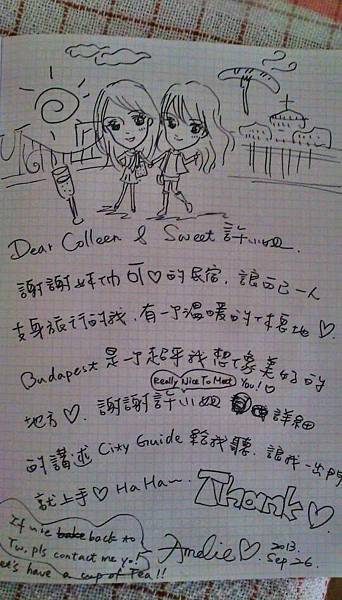 Dear Colleen & Sweet 許小姐.
謝謝妳們可♡的民宿, 讓自己一人
隻身旅行的我, 有一個溫暖的休憩地♡.
Budapest 是一個超乎我想像美好的
Really Nice To Meet You!♡
地方♡. 謝謝許小姐 詳細
的講述 City Guide 給我聽, 讓我一出門
就上手♡ HaHa~
Thank♡
If u're back to
Tw, pls contact me yo!
Let's have a cup of Tea!!
Amelie♡ 2013.
Sep 26.